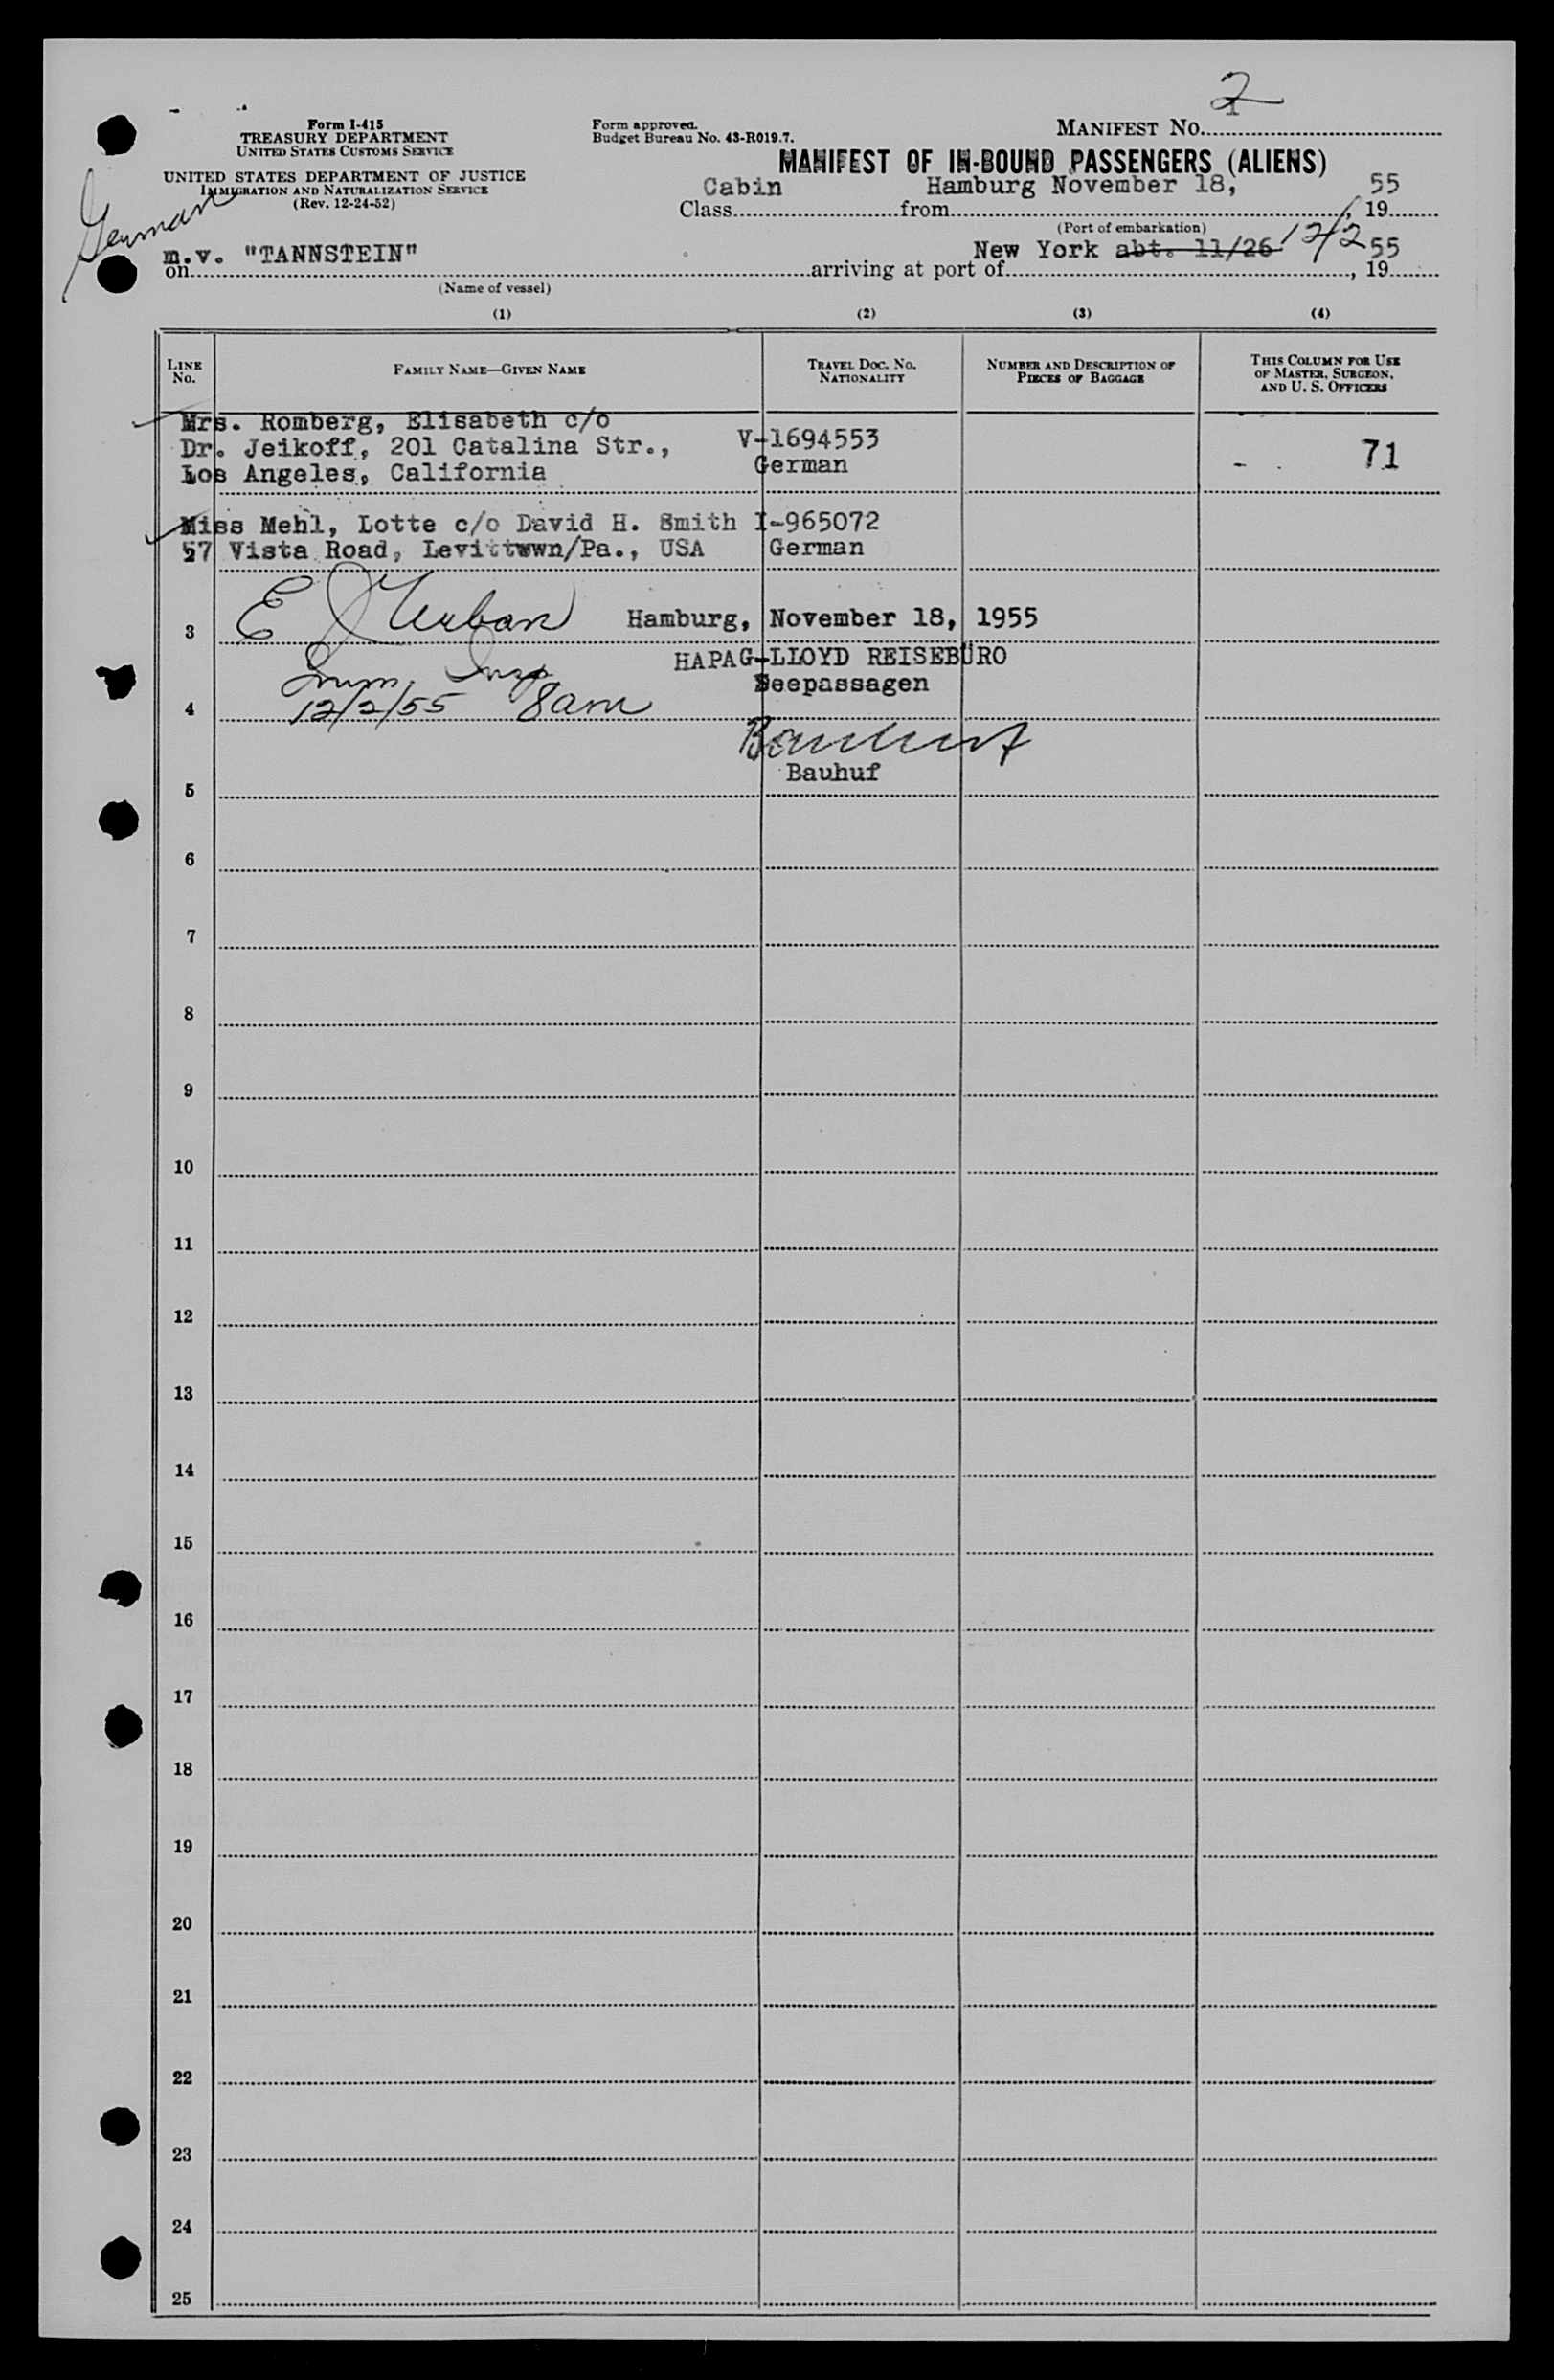 2
Form I-415
TREASURY DEPARTMENT
UNITED STATES CUSTOMS SERVICE
UNITED STATES DEPARTMENT OF JUSTICE
IMMIGRATION AND NATURALIZATION SERVICE
(Rev. 12-24-52)
German
Form approved.
Budget Bureau No. 43-R019.7.
MANIFEST No.
MANIFEST OF IN-BOUND PASSENGERS (ALIENS)
Class Cabin from Hamburg November 18, , 19 55
(Port of embarkation)
on m.v. "TANNSTEIN" arriving at port of New York abt. 11/26 12/2 , 19 55
(Name of vessel)
(1) (2) (3) (4)
LINE No. FAMILY NAME—GIVEN NAME TRAVEL DOC. No. NATIONALITY NUMBER AND DESCRIPTION OF PIECES OF BAGGAGE THIS COLUMN FOR USE OF MASTER, SURGEON, AND U. S. OFFICERS
Mrs. Romberg, Elisabeth c/o
Dr. Jeikoff, 201 Catalina Str., V-1694553
Los Angeles, California German 71
Miss Mehl, Lotte c/o David H. Smith I-965072
57 Vista Road, Levittwwn/Pa., USA German
3 E J Urban Hamburg, November 18, 1955
HAPAG-LLOYD REISEBÜRO
Imm. Insp Seepassagen
4 12/2/55 8am
Bauhuf
5
6
7
8
9
10
11
12
13
14
15
16
17
18
19
20
21
22
23
24
25